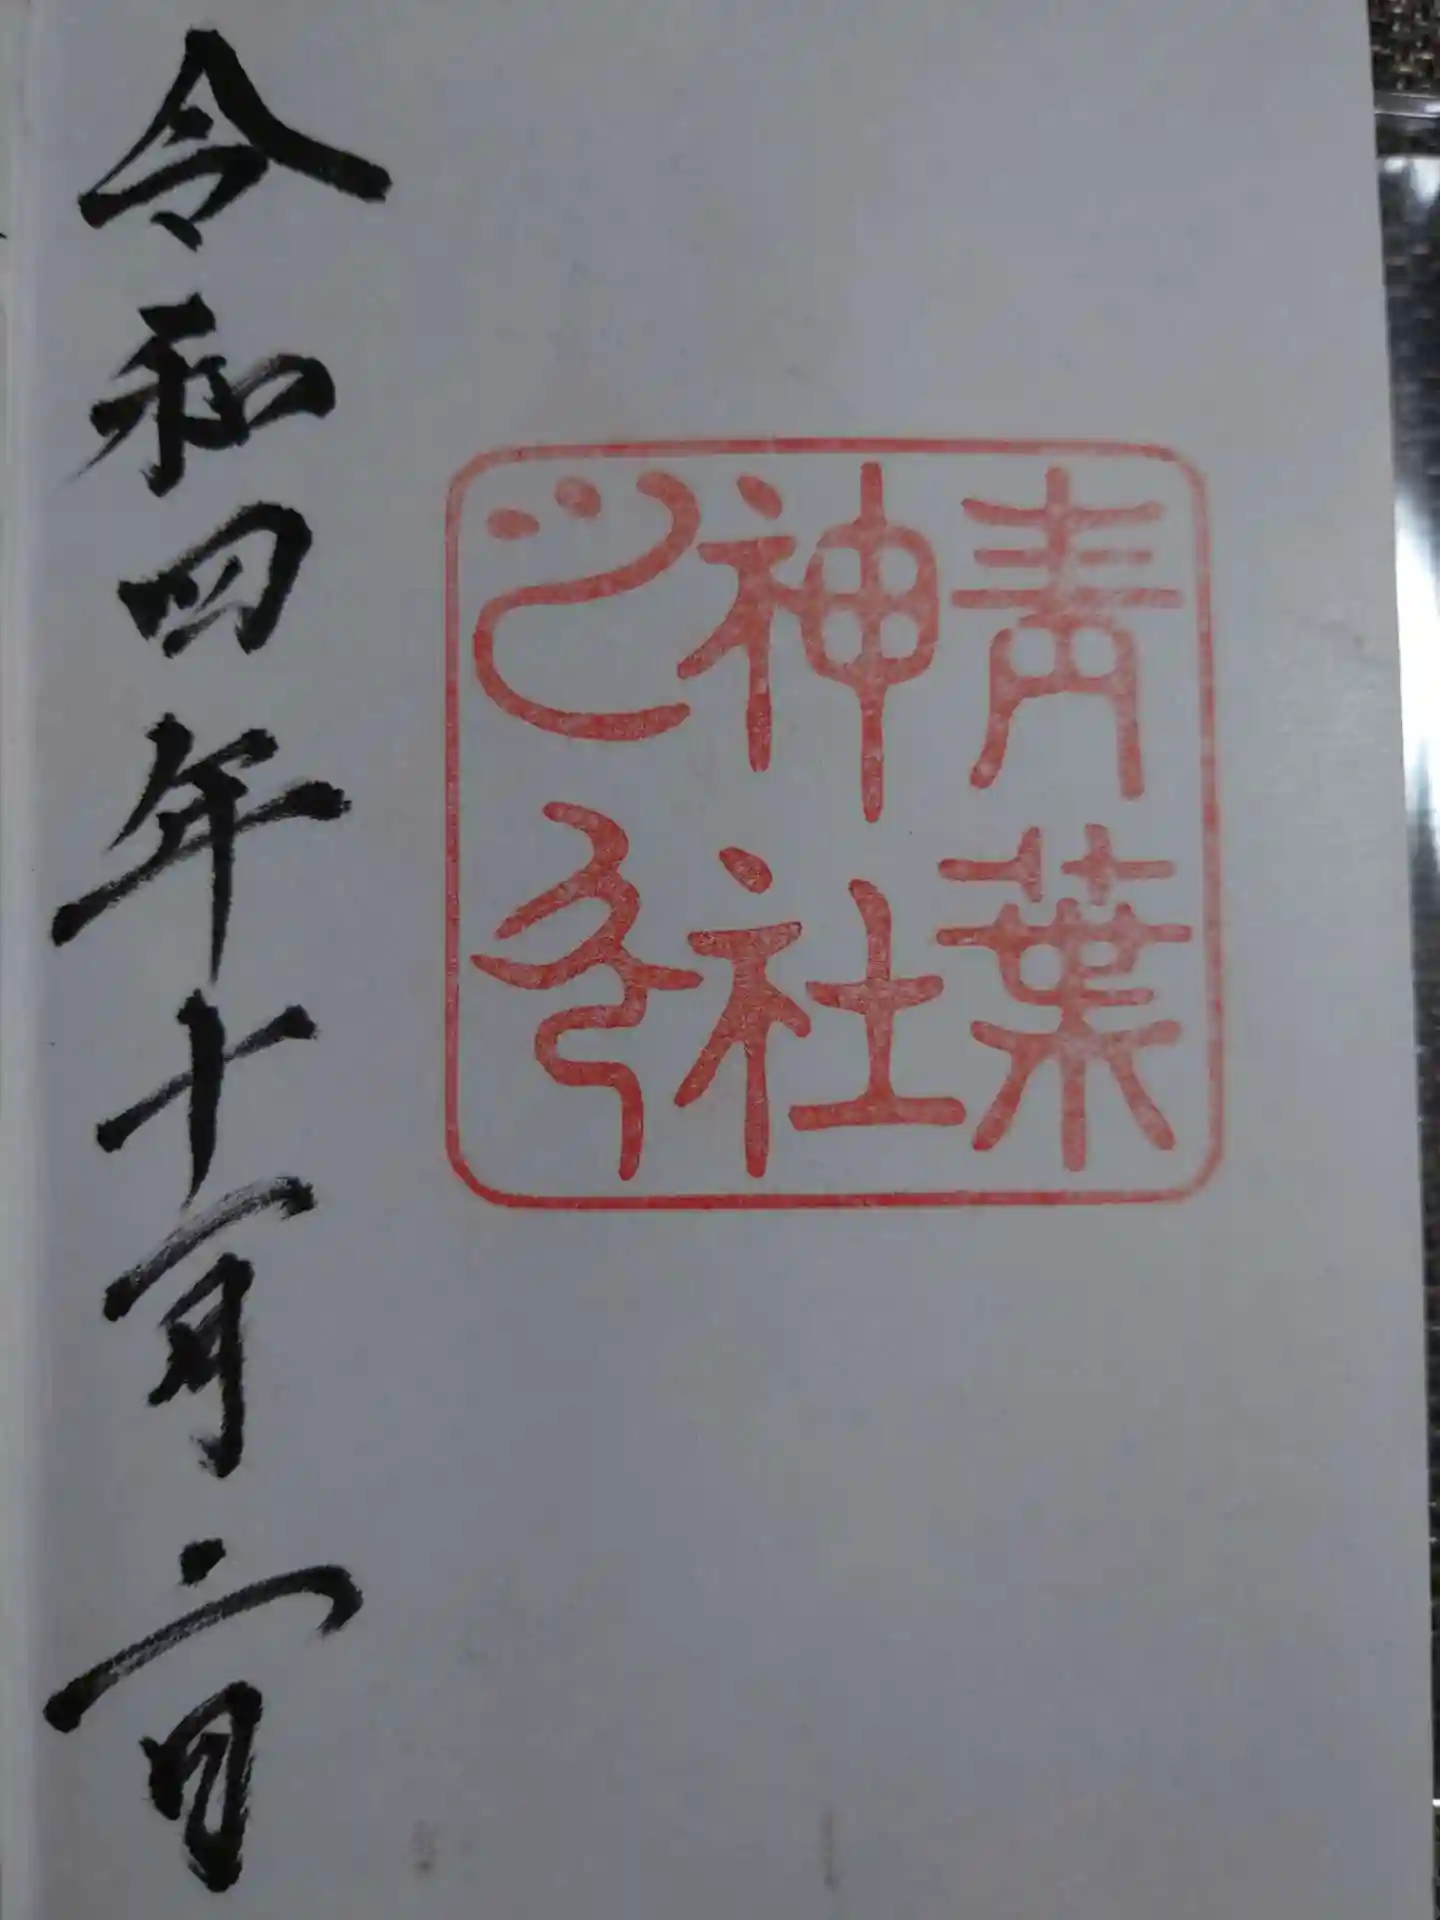 青葉
神社
之印
令和四年十一月二日